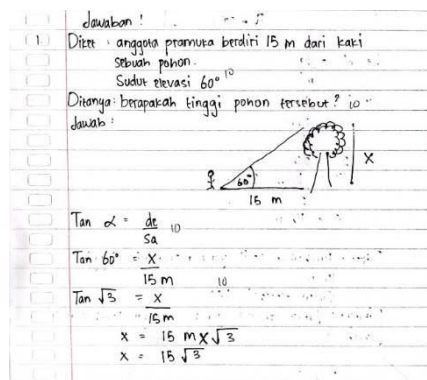 Jawaban !
1. Diket : anggota pramuka berdiri 15 m dari kaki
sebuah pohon.
Sudut elevasi 60° 10
Ditanya : berapakah tinggi pohon tersebut ? 10
Jawab :
60°
X
15 m
Tan α = de/sa 10
Tan 60° = X/15 m
Tan √3 = X/15m 10
X = 15 m X √3
X = 15 √3